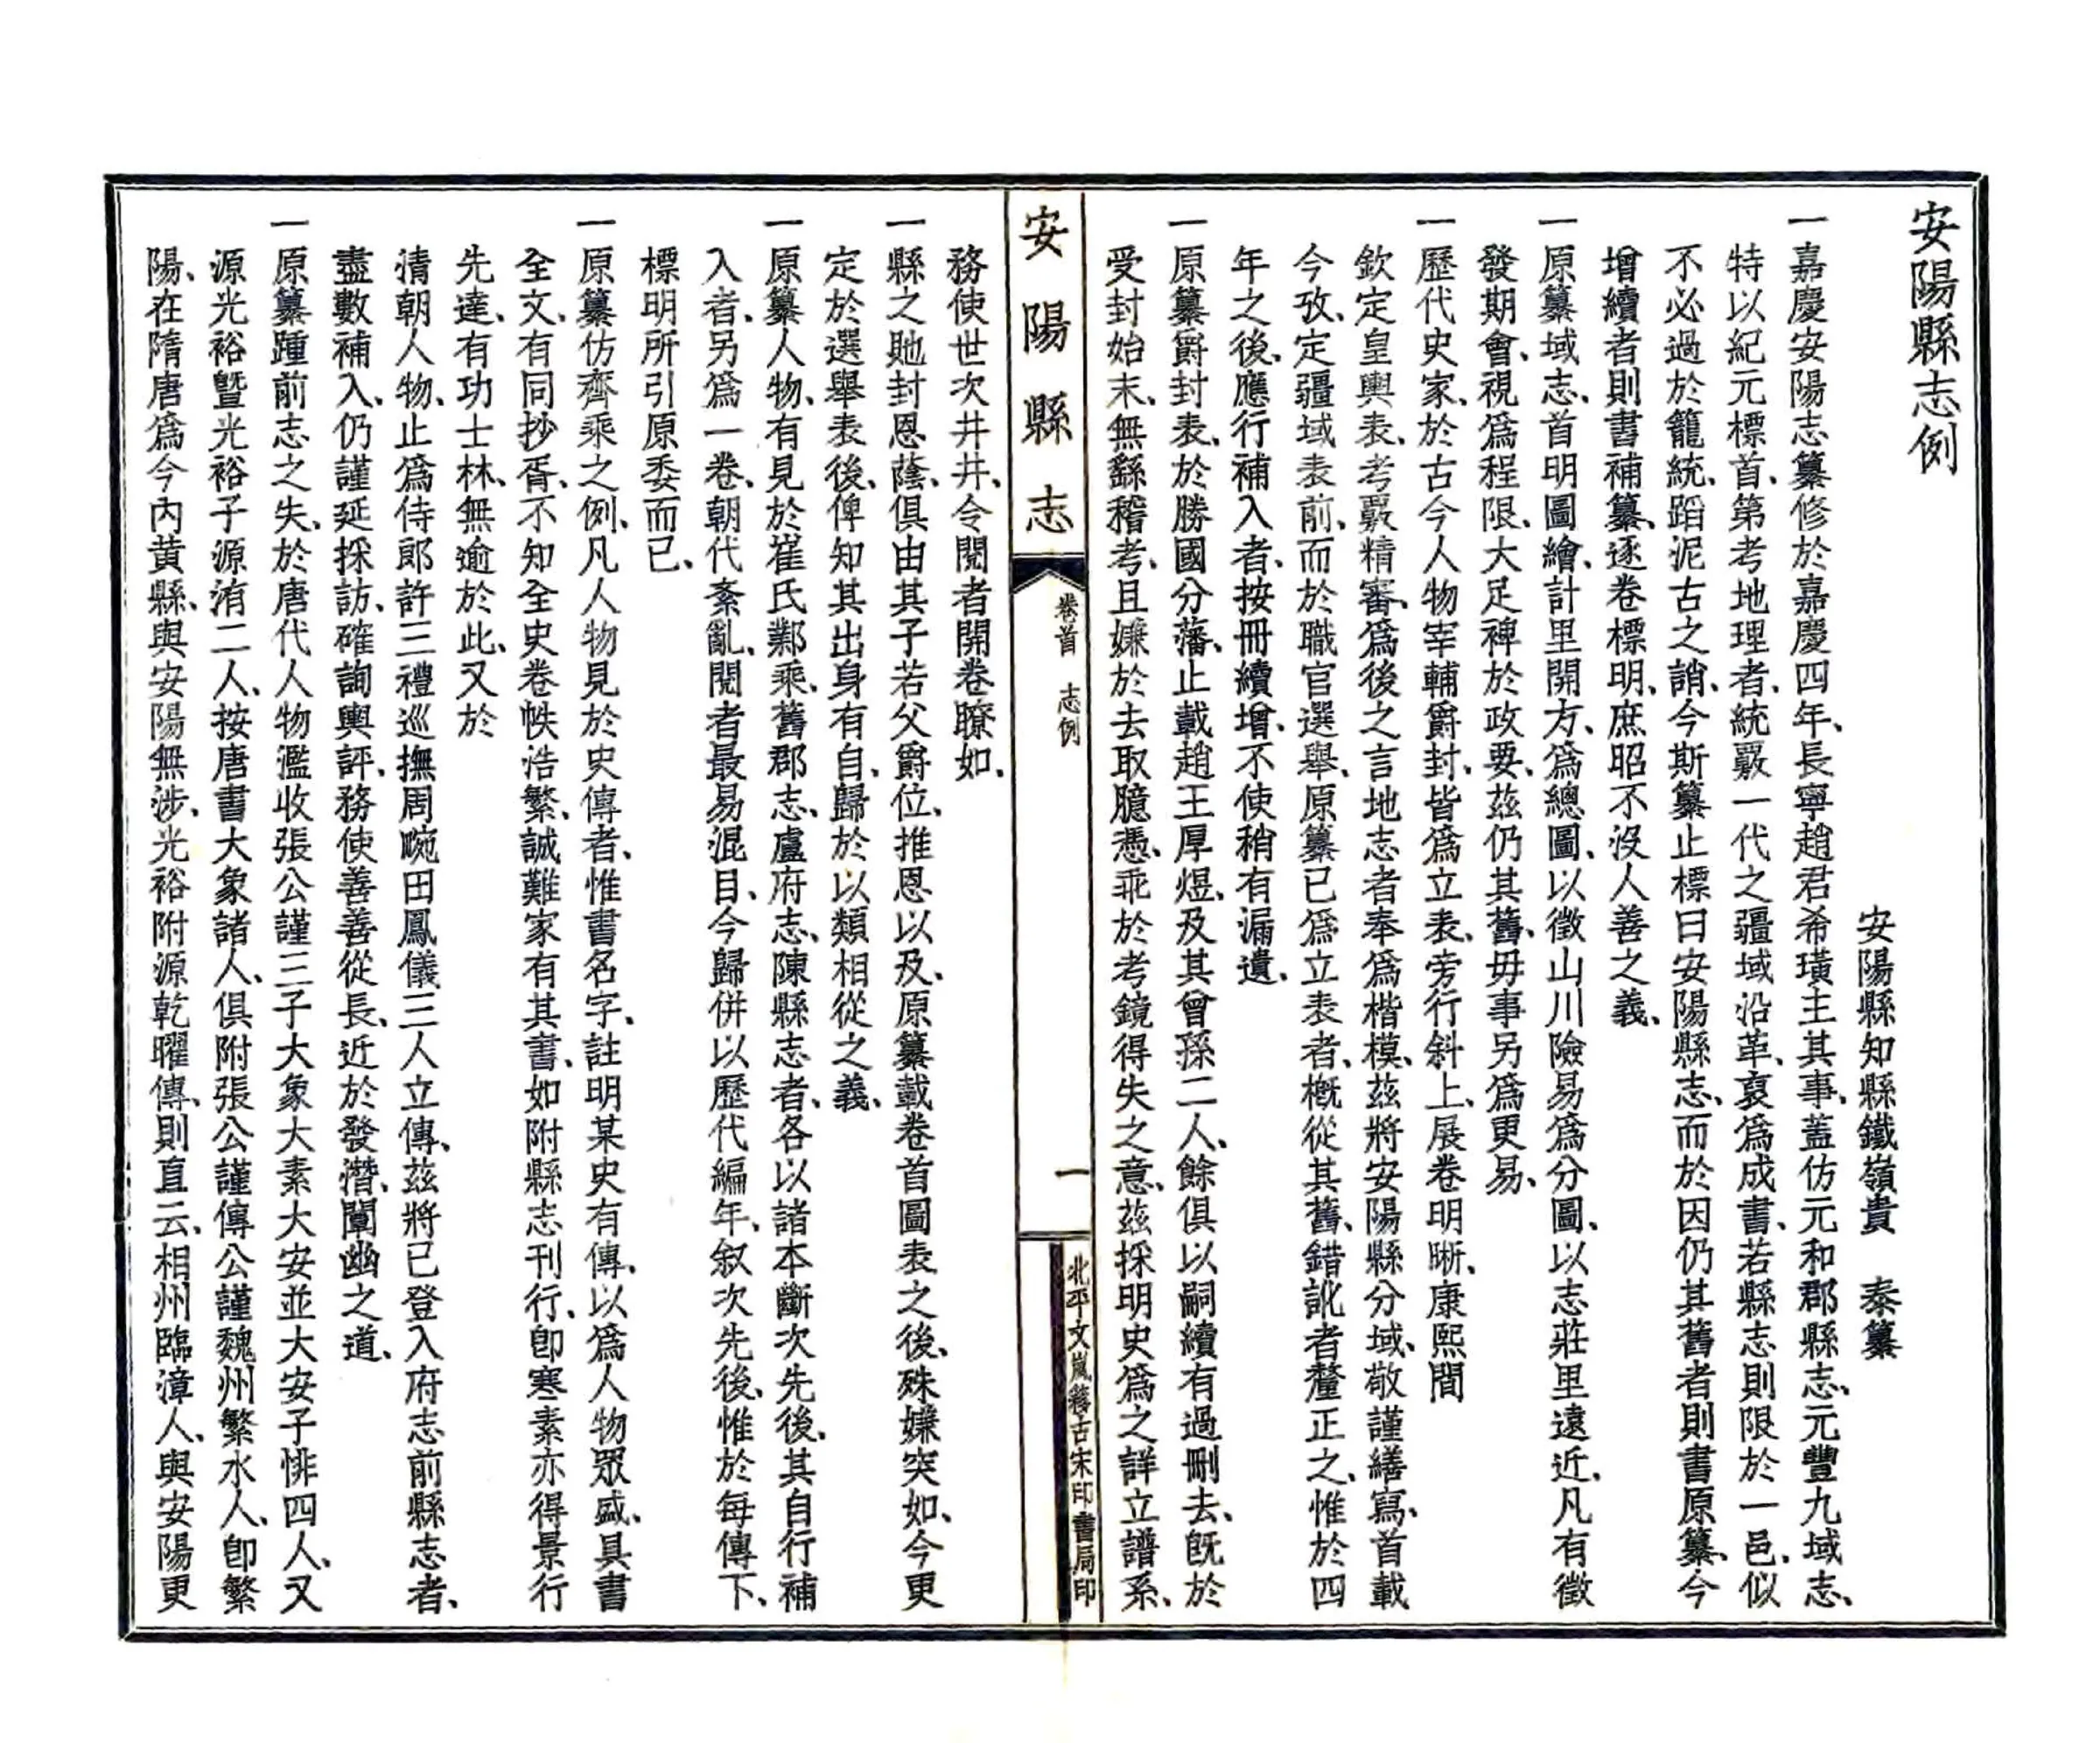 安陽縣志例
安陽縣知縣鐵嶺貴　泰纂
一嘉慶安陽志纂修於嘉慶四年、長寧趙君希璜主其事、蓋仿元和郡縣志、元豐九域志、
特以紀元標首、第考地理者、統覈一代之疆域沿革、裒爲成書、若縣志則限於一邑、似
不必過於籠統、蹈泥古之誚、今斯纂止標曰安陽縣志、而於因仍其舊者則書原纂、今
增續者則書補纂、逐卷標明、庶昭不沒人善之義、
一原纂域志、首明圖繪、計里開方、爲總圖、以徵山川險易爲分圖、以志莊里遠近、凡有徵
發期會、視爲程限、大足裨於政要、茲仍其舊、毋事另爲更易、
一歷代史家、於古今人物宰輔爵封、皆爲立表、旁行斜上、展卷明晰、康熙間
欽定皇輿表、考覈精審、爲後之言地志者奉爲楷模、茲將安陽縣分域、敬謹繕寫、首載
今攷、定疆域表前、而於職官選舉、原纂已爲立表者、概從其舊、錯訛者釐正之、惟於四
年之後、應行補入者、按冊續增、不使稍有漏遺、
一原纂爵封表、於勝國分藩、止載趙王厚煜、及其曾孫二人、餘俱以嗣續有過刪去、既於
受封始末、無繇稽考、且嫌於去取臆憑、乖於考鏡得失之意、茲採明史爲之詳立譜系、
安陽縣志
卷首　志例
一
北平文嵐簃古宋印書局印
務使世次井井、令閱者開卷瞭如、
一縣之貤封恩蔭、俱由其子若父爵位、推恩以及、原纂載卷首圖表之後、殊嫌突如、今更
定於選舉表後、俾知其出身有自、歸於以類相從之義、
一原纂人物、有見於崔氏鄴乘、舊郡志、盧府志、陳縣志者、各以諸本斷次先後、其自行補
入者、另爲一卷、朝代紊亂、閱者最易混目、今歸併以歷代編年、叙次先後、惟於每傳下、
標明所引原委而已、
一原纂仿齊乘之例、凡人物見於史傳者、惟書名字、註明某史有傳、以爲人物眾盛、具書
全文、有同抄胥、不知全史卷帙浩繁、誠難家有其書、如附縣志刊行、卽寒素亦得景行
先達、有功士林、無逾於此、又於
清朝人物、止爲侍郎許三禮巡撫周畹田鳳儀三人立傳、茲將已登入府志前縣志者、
盡數補入、仍謹延採訪、確詢輿評、務使善善從長、近於發潛闡幽之道、
一原纂踵前志之失、於唐代人物濫收張公謹三子大象大素大安並大安子悱四人、又
源光裕暨光裕子源洧二人、按唐書大象諸人、俱附張公謹傳公謹魏州繁水人、卽繁
陽、在隋唐爲今內黃縣、與安陽無涉、光裕附源乾曜傳、則直云、相州臨漳人、與安陽更